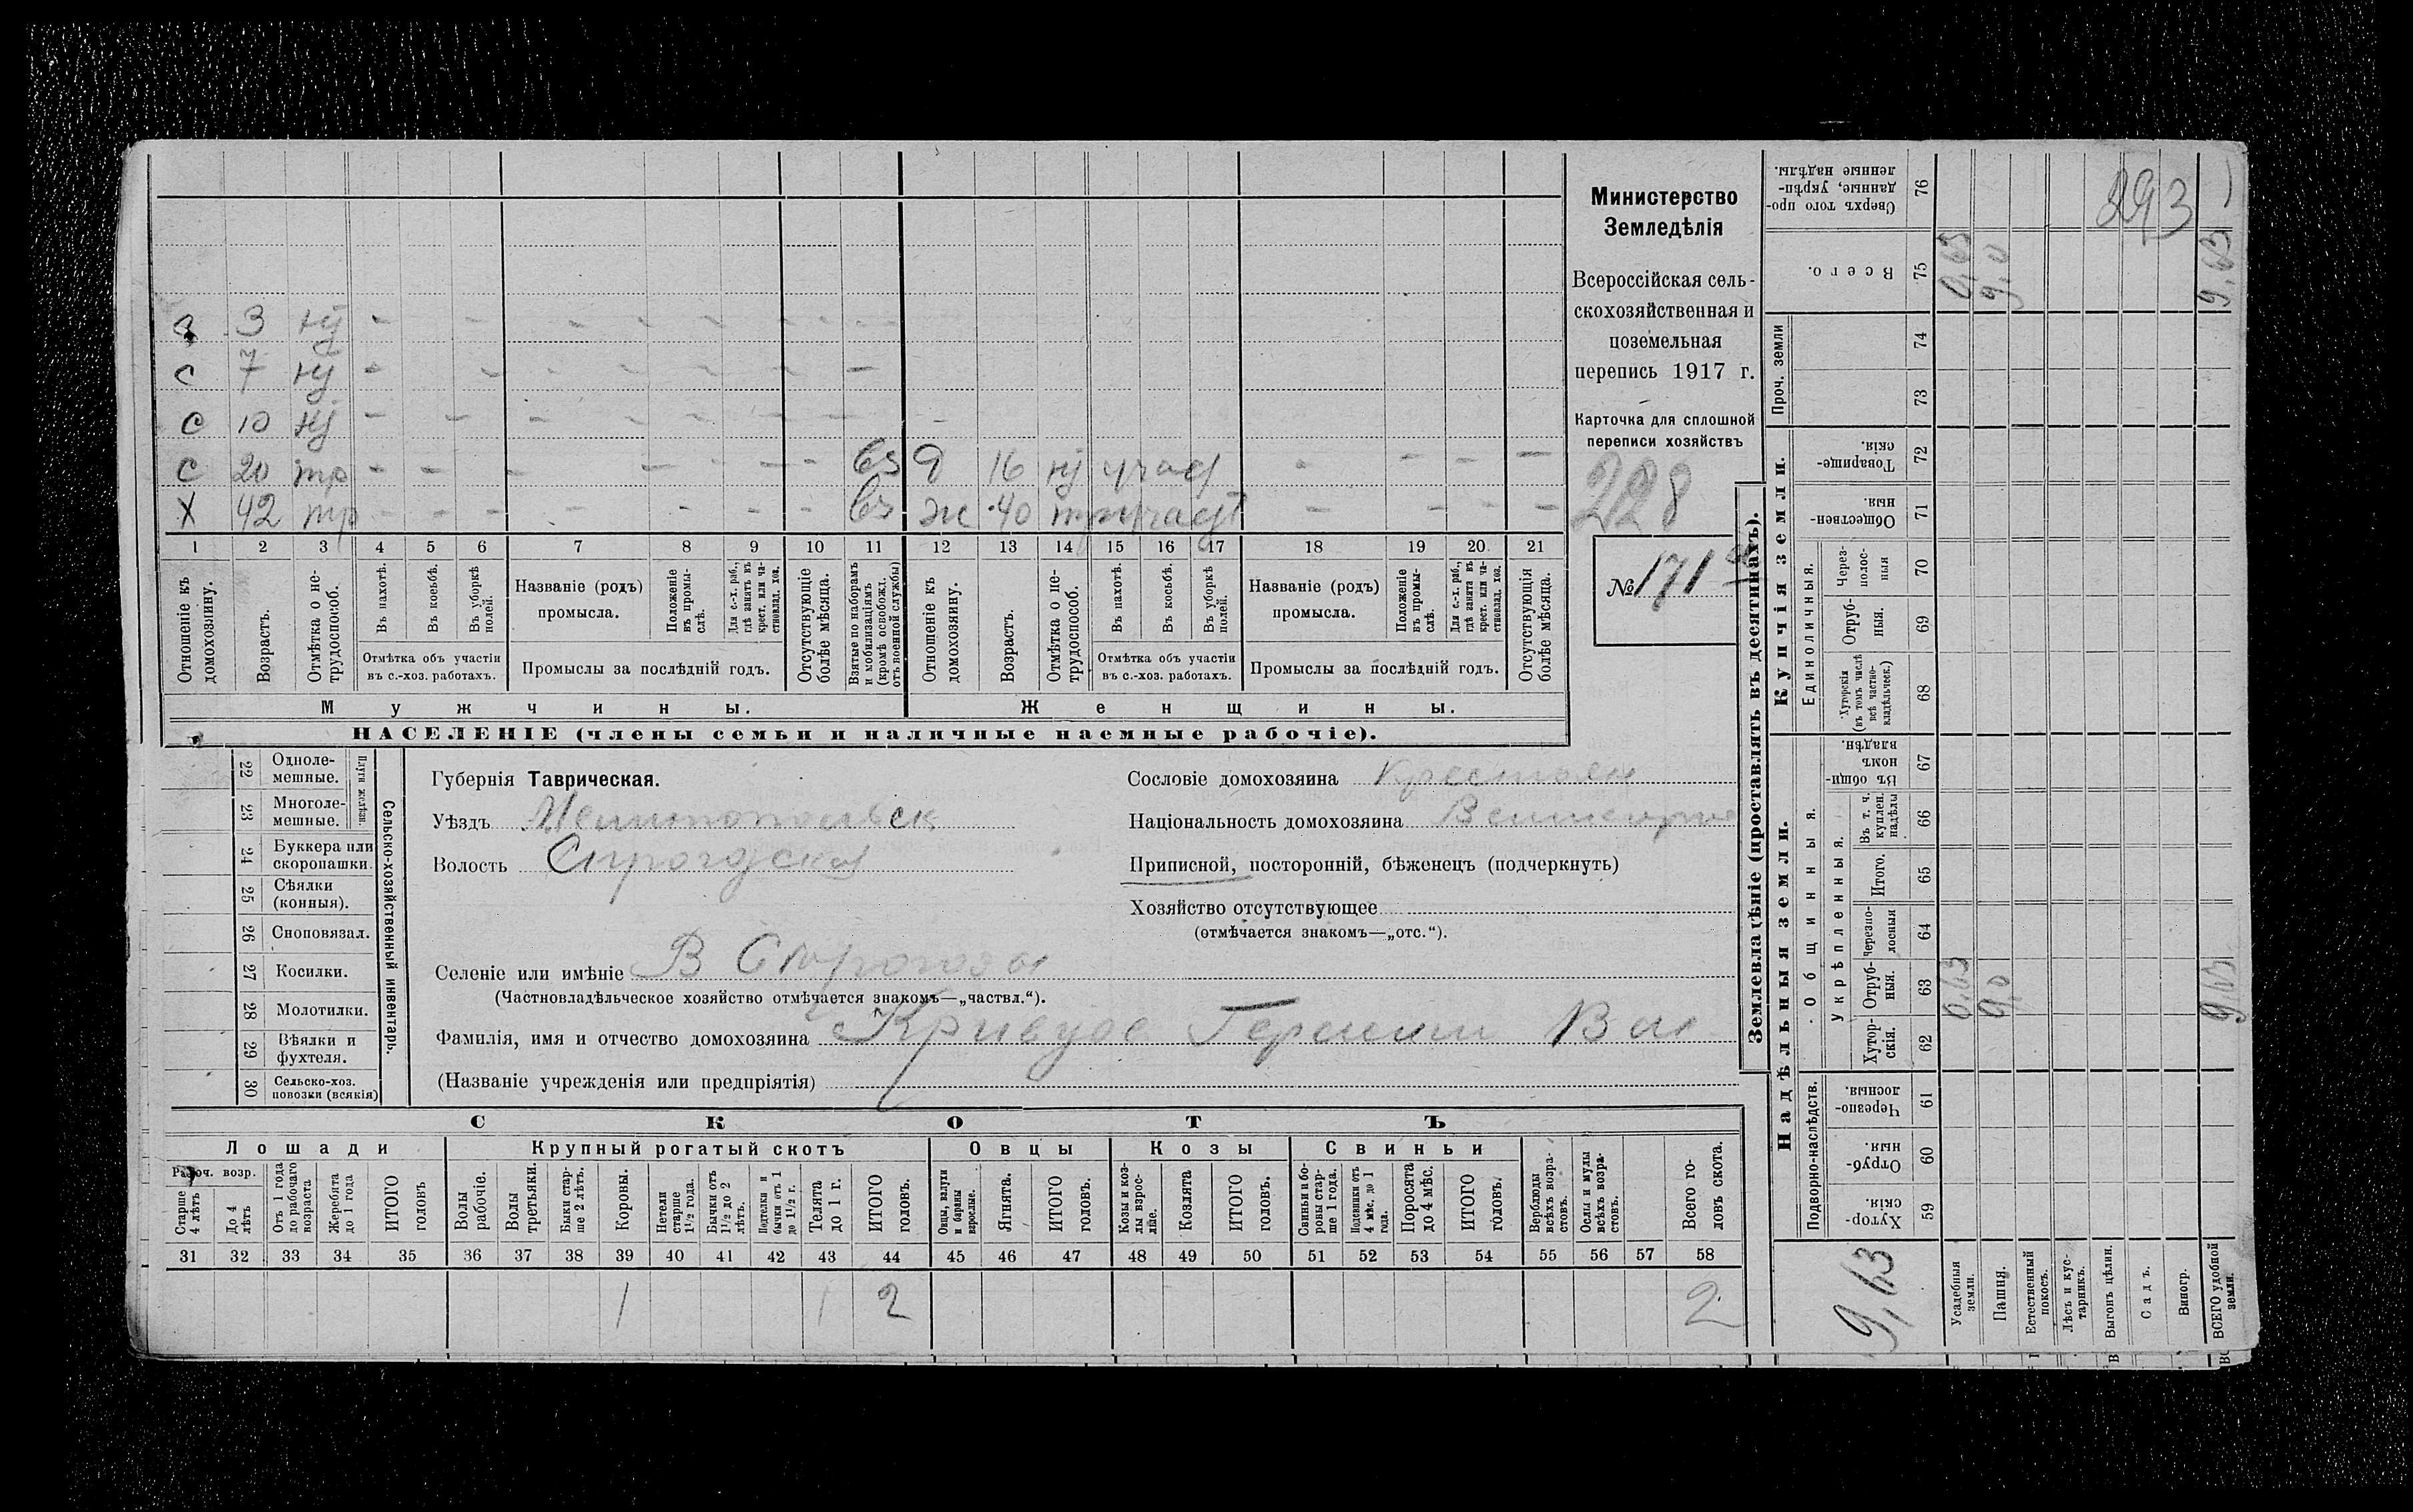 С 3 нј - - - - - - - - -
С 7 нј - - - - - - - -
С 10 нј - - - - - - - -
С 20 тр - - - - - - вз д 16 нј участ - - - -
Х 42 тр - - - - - - - вз ж 40 тр участ - - - -
1 2 3 4 5 6 7 8 9 10 11 12 13 14 15 16 17 18 19 20 21
Отношеніе къ домохозяину.
Возрастъ.
Отмѣтка о не-трудоспособ.
Въ пахотѣ.
Въ косьбѣ.
Въ уборкѣ полей.
Отмѣтка объ участіи
въ с.-хоз. работахъ.
Названіе (родъ)
промысла.
Положеніе въ промы-слѣ.
Для с.-х. раб., гдѣ занятъ въ крест. или ча-стновлад. хоз.
Промыслы за послѣдній годъ.
Отсутствующіе болѣе мѣсяца.
Взятые по наборамъ и мобилизаціямъ (кромѣ освобожд. отъ военной службы)
Отношеніе къ домохозяину.
Возрастъ.
Отмѣтка о не-трудоспособ.
Въ пахотѣ.
Въ косьбѣ.
Въ уборкѣ полей.
Отмѣтка объ участіи
въ с.-хоз. работахъ.
Названіе (родъ)
промысла.
Положеніе въ промы-слѣ.
Для с.-х. раб., гдѣ занята въ крест. или ча-стновлад. хоз.
Промыслы за послѣдній годъ.
Отсутствующія болѣе мѣсяца.
Мужчины. Женщины.
НАСЕЛЕНІЕ (члены семьи и наличные наемные рабочіе).
Министерство
Земледѣлія
Всероссійская сель-
скохозяйственная и
поземельная
перепись 1917 г.
Карточка для сплошной
переписи хозяйствъ
228
№ 171
22 Одноле-мешные.
23 Многоле-мешные.
Плуги желѣзн.
24 Буккера или скоропашки.
25 Сѣялки (конныя).
26 Сноповязал.
27 Косилки.
28 Молотилки.
29 Вѣялки и фухтеля.
30 Сельско-хоз. повозки (всякія)
Сельско-хозяйственный инвентарь.
Губернія Таврическая.
Уѣздъ Мелитопольск
Волость
Селеніе или имѣніе В
(Частновладѣльческое хозяйство отмѣчается знакомъ—„частвл.“).
Фамилія, имя и отчество домохозяина
(Названіе учрежденія или предпріятія)
Сословіе домохозяина Крестьян
Національность домохозяина
Приписной, посторонній, бѣженецъ (подчеркнуть)
Хозяйство отсутствующее
(отмѣчается знакомъ—„отс.“).
СКОТЪ
Лошади Крупный рогатый скотъ Овцы Козы Свиньи
Рабоч. возр.
Старше 4 лѣтъ
До 4 лѣтъ
Отъ 1 года до рабочаго возраста
Жеребята до 1 года
ИТОГО головъ
Волы рабочіе.
Волы третьяки.
Быки стар-ше 2 лѣтъ.
Коровы.
Нетели старше 1½ года.
Бычки отъ 1½ до 2 лѣтъ.
Подтелки и бычки отъ 1 до 1½ г.
Телята до 1 г.
ИТОГО головъ.
Овцы, валухи и бараны взрослые.
Ягнята.
ИТОГО головъ.
Козы и коз-лы взрос-лые.
Козлята
ИТОГО головъ.
Свиньи и бо-ровы стар-ше 1 года.
Подсвинки отъ 4 мѣс. до 1 года.
Поросята до 4 мѣс.
ИТОГО головъ.
Верблюды всѣхъ возра-стовъ.
Ослы и мулы всѣхъ возра-стовъ.
Всего го-ловъ скота.
31 32 33 34 35 36 37 38 39 40 41 42 43 44 45 46 47 48 49 50 51 52 53 54 55 56 57 58
1 1 2 2
Землевладѣніе (проставлять въ десятинахъ).
Надѣльныя земли. Купчія земли.
Подворно-наслѣдств.
Общинныя.
Укрѣпленныя.
Единоличныя.
Проч. земли
59 Хутор-скія.
60 Отруб-ныя.
61 Черезпо-лосныя.
62 Хутор-скія.
63 Отруб-ныя. 0,63 9,0 9,63
64 Черезпо-лосныя
65 Итого.
66 Въ т. ч. куплен. надѣлы
67 Въ общи-номъ владѣн.
68 Хуторскія (въ томъ числѣ всѣ частно-владѣльческ.)
69 Отруб-ныя.
70 Через-полос-ныя
71 Обществен-ныя.
72 Товарище-скія.
73
74
75 Всего. 0,63 9,0 9,63
76 Сверхъ того про-данные, укрѣп-ленные надѣлы.
293
9,63
Усадебныя земли.
Пашня.
Естественный покосъ.
Лѣсъ и кус-тарникъ.
Выгонъ цѣлин.
Садъ.
Виногр.
ВСЕГО удобной земли.